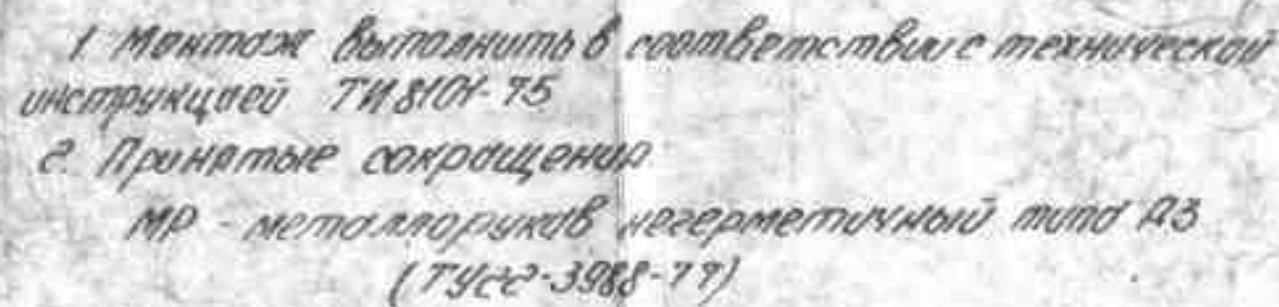 1 Монтаж выполнить в соответствии с технической
инструкцией ТИ 8101-75
2. Принятые сокращения
МР - металлорукав негерметичный типа РЗ
(ТУ22-3988-77)